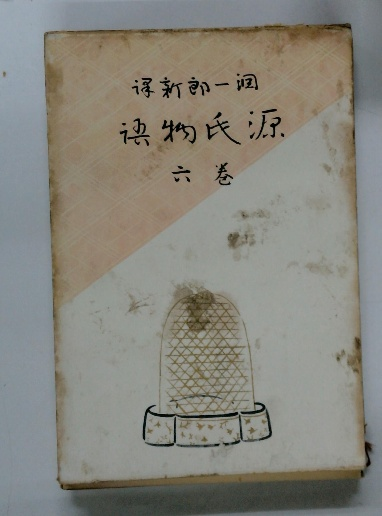 潤一郎新譯
源氏物語
巻六